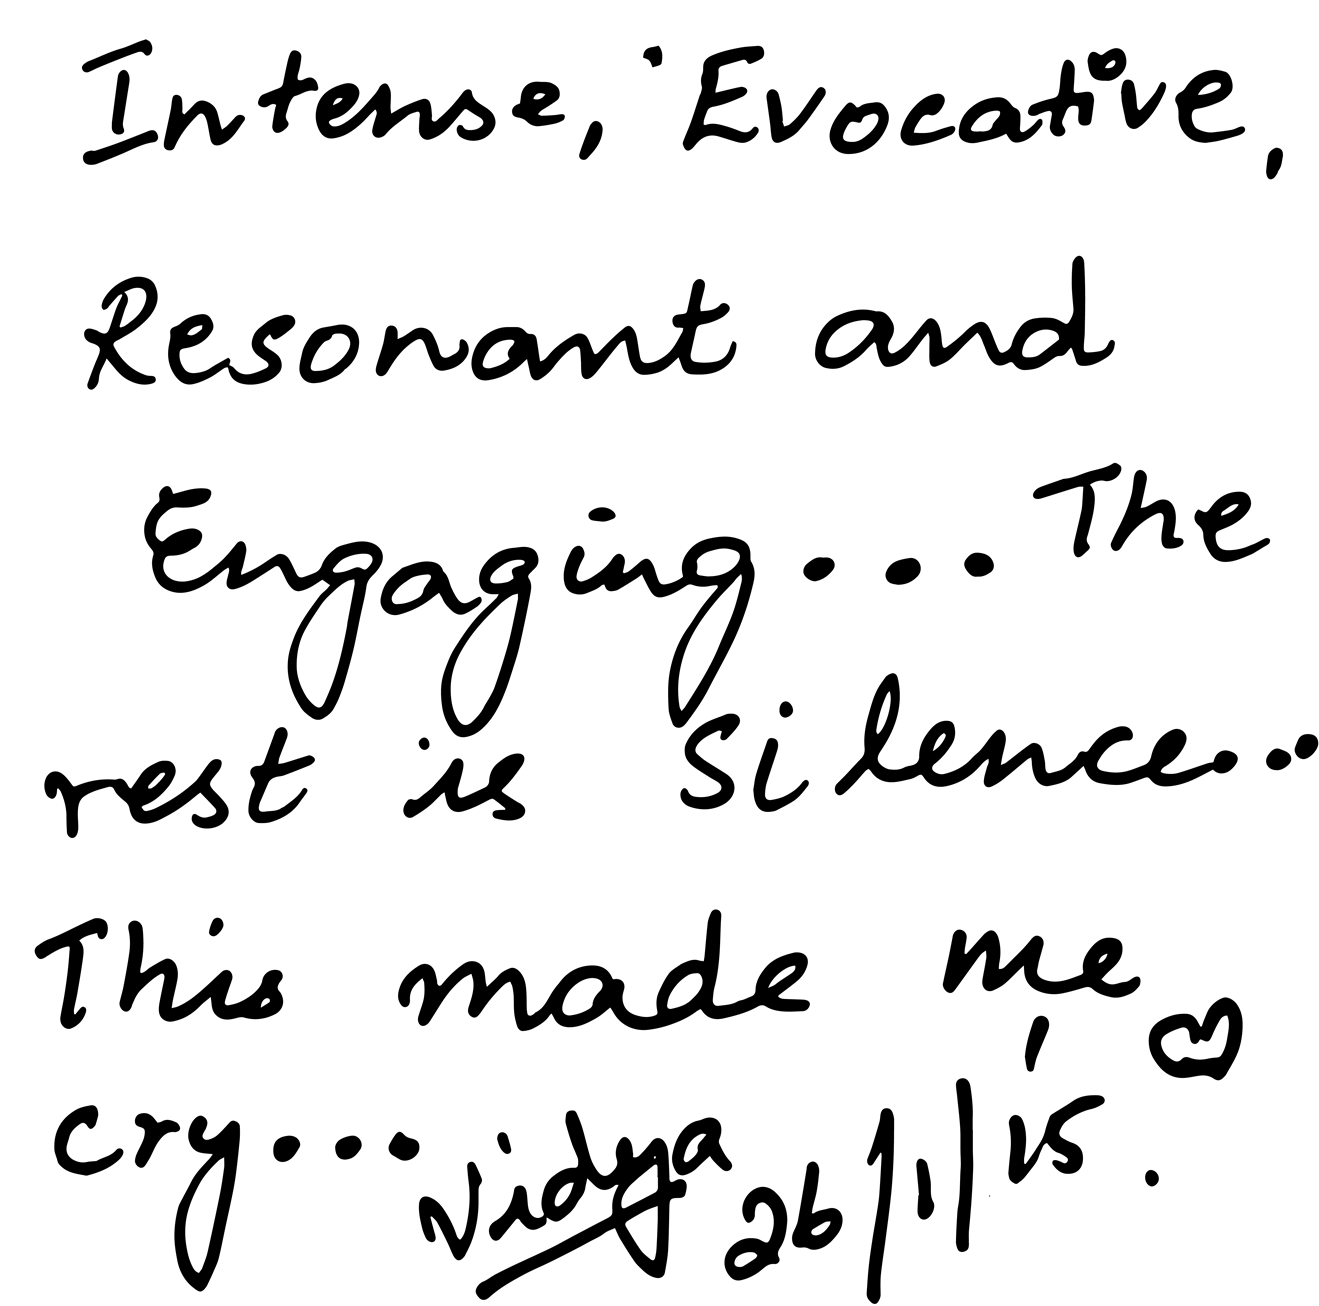 Intense, Evocative,
Resonant and
Engaging... The
rest is Silence...
This made me
cry... Vidya 26/1/15.